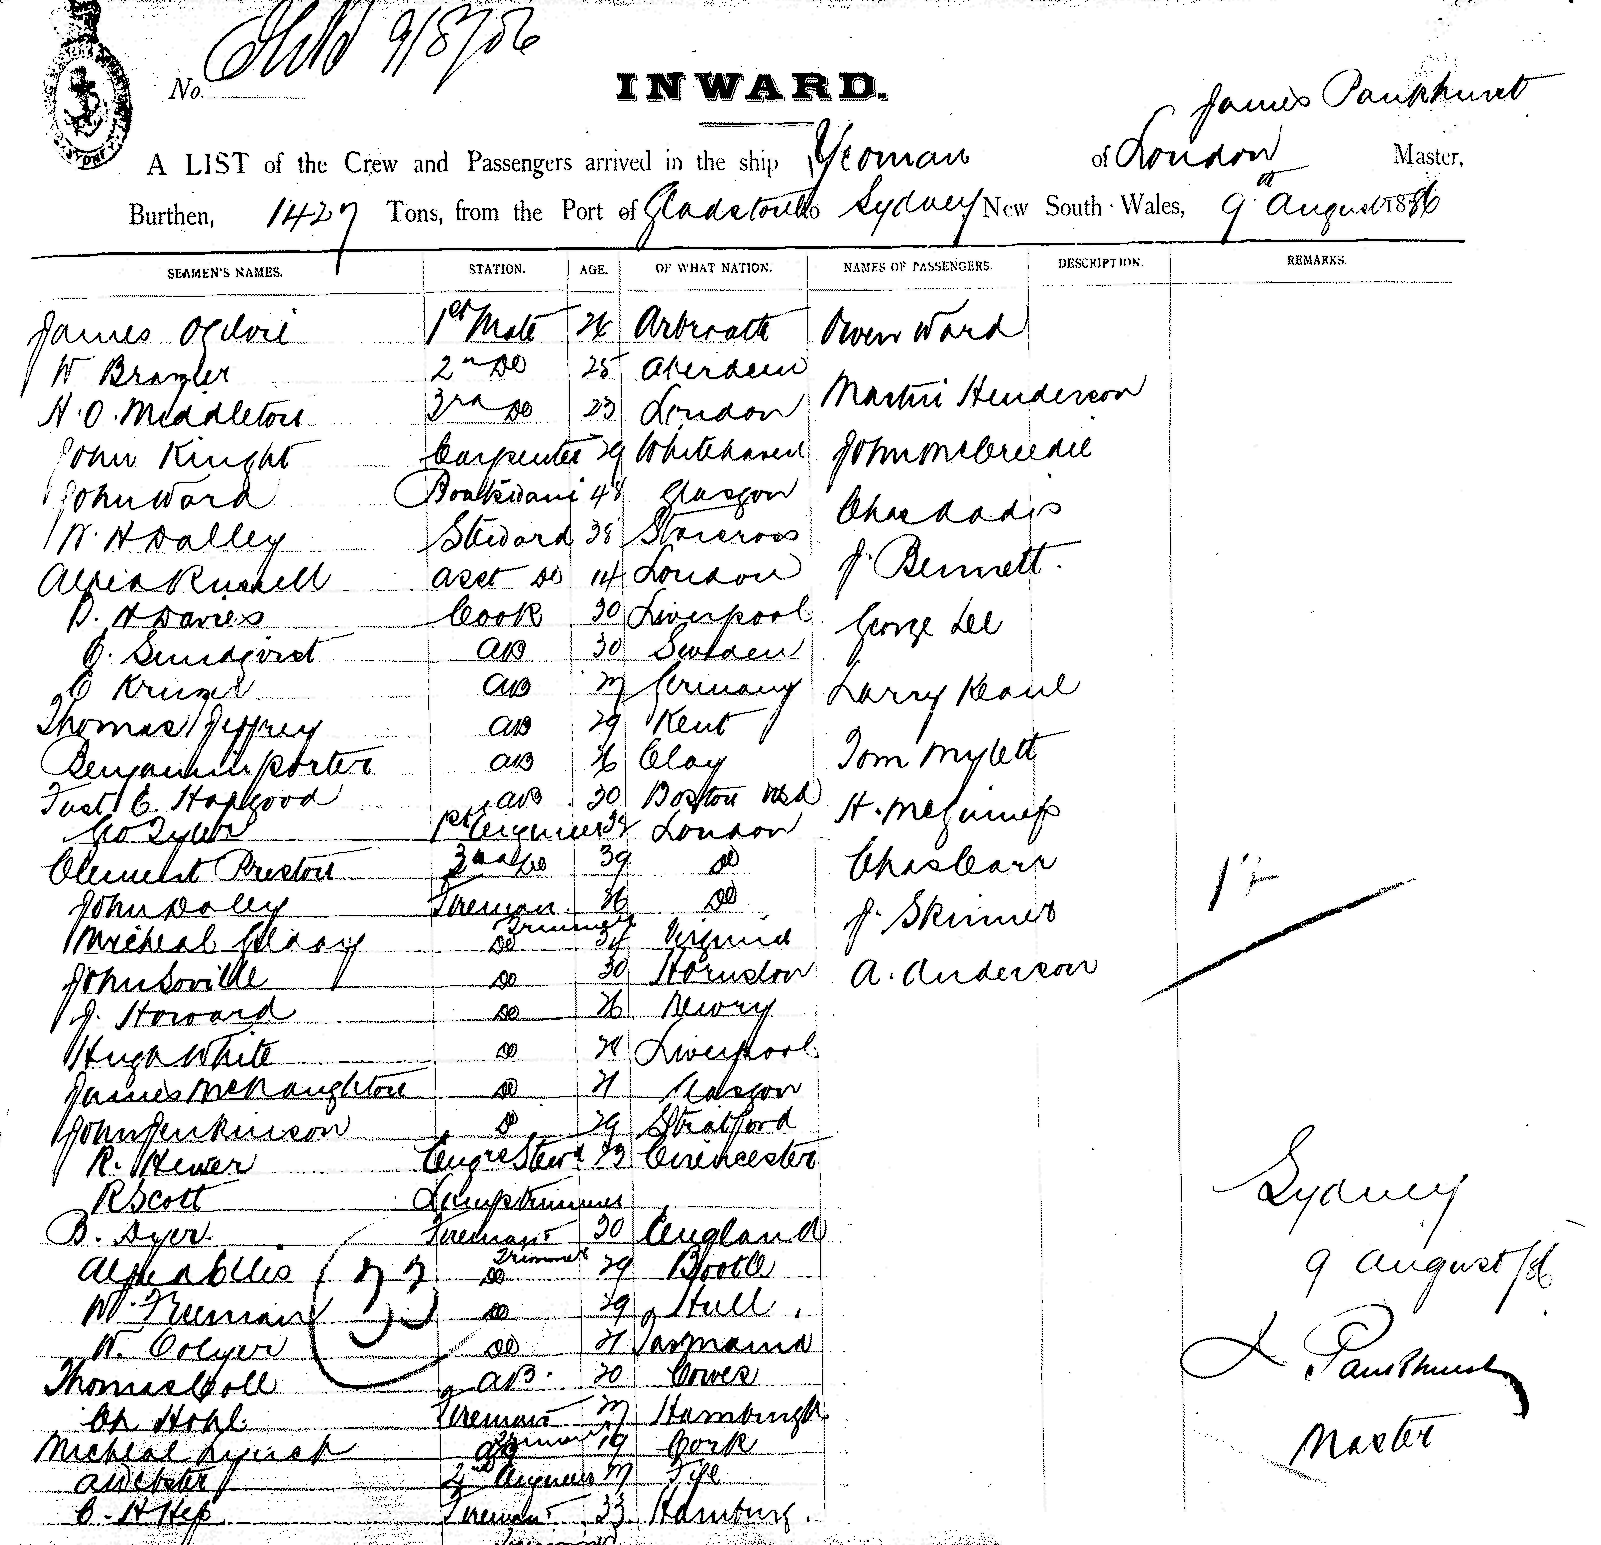 No. 9/8/86
INWARD.
James Pankhurst
A LIST of the Crew and Passengers arrived in the ship Yeoman of London Master,
Burthen, 1427 Tons, from the Port of Gladstone to Sydney New South Wales, 9th August 1886
SEAMEN'S NAMES. STATION. AGE. OF WHAT NATION. NAMES OF PASSENGERS. DESCRIPTION. REMARKS.
James Ogilvie 1st Mate Arbroath Owen Ward
W Brazier 2nd Do 25 Aberdeen
H. O. Middleton 3rd Do 23 London Martin Henderson
John Knight Carpenter 29 Whitehaven John McCreedie
John Ward Boatswain 48 Glasgow
Chas Dadis
W. H Dalley Steward 38 Starcross
J. Bennett.
Alfred Russell Asst Do 14 London
D. H Davies Cook 30 Liverpool
George Lee
O. Sundqvist AB 30 Sweden
C Kruger AB Germany Larry Keane
Thomas Jeffrey AB 29 Kent
Benjamin Porter AB 26 Clay Tom Mylett
C. Hapgood AB 30 Boston USA H. McGuiness
Geo Tyler 1st Engineer London
Clement Preston 3rd Do 39 Do Chas Carr
John Daley Fireman 26 Do
J. Skinner
Micheal Trimmer
Do Virginia
John Soville Do 30 Horndon A. Anderson
J. Howard Do 26 Newry
Hugh White Do 28 Liverpool
James McNaughton Do 21 Glasgow
John Jenkinson Do 29 Stratford
R. Hewer Engrs Stewd 23 Cirencester
R Scott Lamptrimmer
B. Dyer Fireman 30 England
Alfred Ellis Trimmer
Do 29 Bootle
W. Freeman Do 29 Hull
W. Colyer Do 21 Tasmania
Thomas Coll AB. 20 Cowes
Ch Hohl Fireman 27 Hamburgh
Micheal Lynch Trimmer 19 Cork
A Webster 2nd Engineer 27 Fife
C. H Hess Fireman 33 Hamburg.
12
Sydney
9 August /86
J Pankhurst
Master